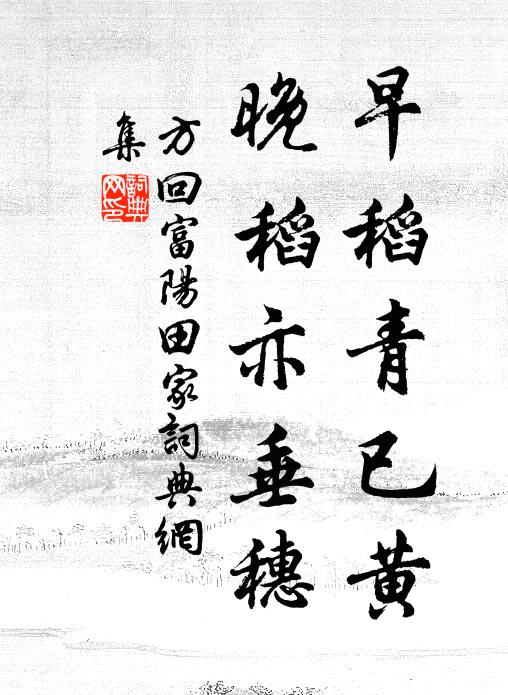 早稻青已黄
晚稻亦垂穗
方回富陽田家詞典網
集
詞典
网印